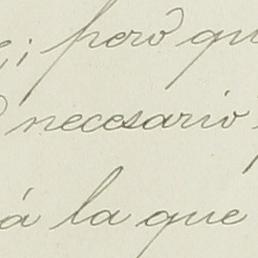 ; però qu
necesario
á la que